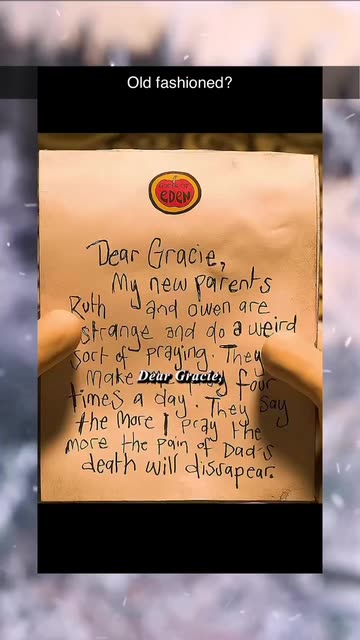 Old fashioned?
EDEN
Dear Gracie,
My new parents
Ruth and owen are
strange and do a weird
sort of praying. They
make four
Dear Gracie,
times a day. They say
the more I pray the
more the pain of Dad's
death will dissapear.